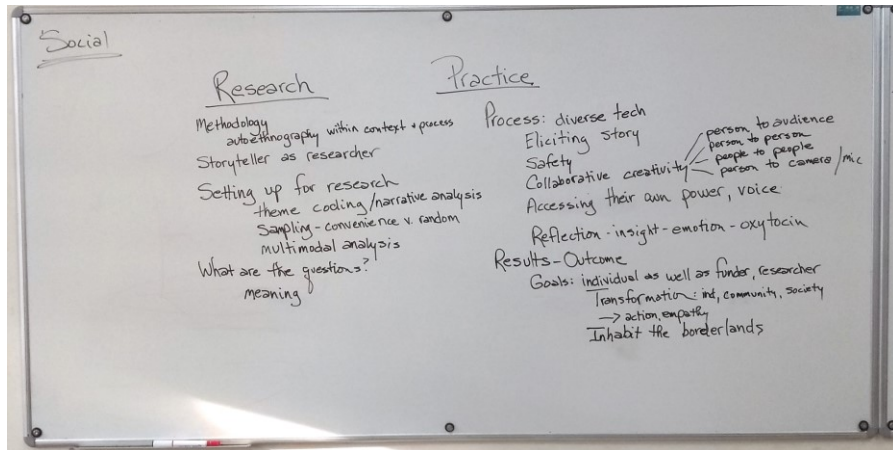 Social
Research
Methodology
autoethnography within context + process
Storyteller as researcher
Setting up for research
theme coding/narrative analysis
Sampling - convenience v. random
multimodal analysis
What are the questions?
meaning
Practice
Process: diverse tech
Eliciting Story
Safety
Collaborative creativity
person to audience
person to person
people to people
person to camera/mic
Accessing their own power, voice
Reflection - insight - emotion - oxytocin
Results - Outcome
Goals: individual as well as funder, researcher
Transformation: ind, community, society
→ action, empathy
Inhabit the borderlands